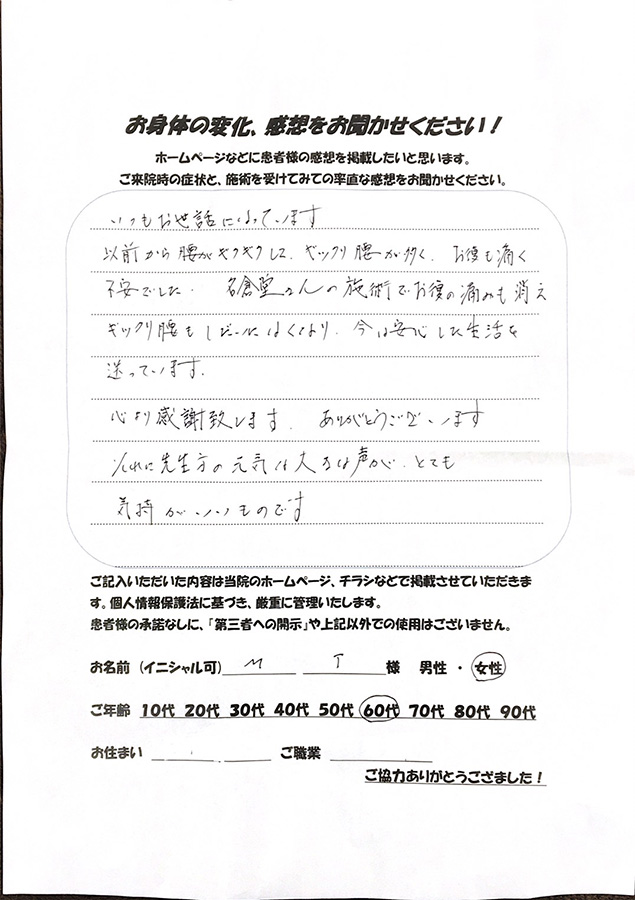 お身体の変化、感想をお聞かせください！
ホームページなどに患者様の感想を掲載したいと思います。
ご来院時の症状と、施術を受けてみての率直な感想をお聞かせください。
いつもお世話になっています
以前から腰がギクギクして、ギックリ腰が多く、お腹も痛く
不安でした。 名倉堂さんの施術でお腹の痛みも消え
ギックリ腰も しだいになくなり、今は安心した生活を
送っています。
心より感謝致します。 ありがとうございます
それに先生方の元気な大きな声が、とても
気持がいいものです
ご記入いただいた内容は当院のホームページ、チラシなどで掲載させていただきま
す。個人情報保護法に基づき、厳重に管理いたします。
患者様の承諾なしに、「第三者への開示」や上記以外での使用はございません。
お名前（イニシャル可） M T 様 男性 ・ 女性
ご年齢 10代 20代 30代 40代 50代 60代 70代 80代 90代
お住まい ご職業
ご協力ありがとうござました！